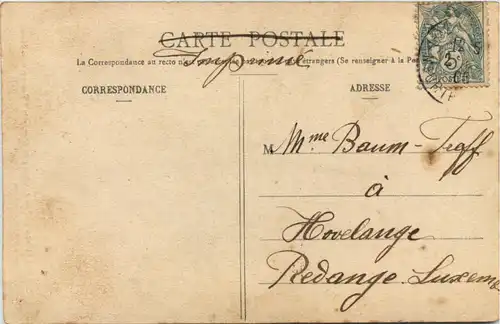 CARTE POSTALE
Imprimé
La Correspondance au recto n'est pas étrangers (Se renseigner à la
CORRESPONDANCE
ADRESSE
M Mme Baum-Treff
à
Hovelange
Redange. Luxem